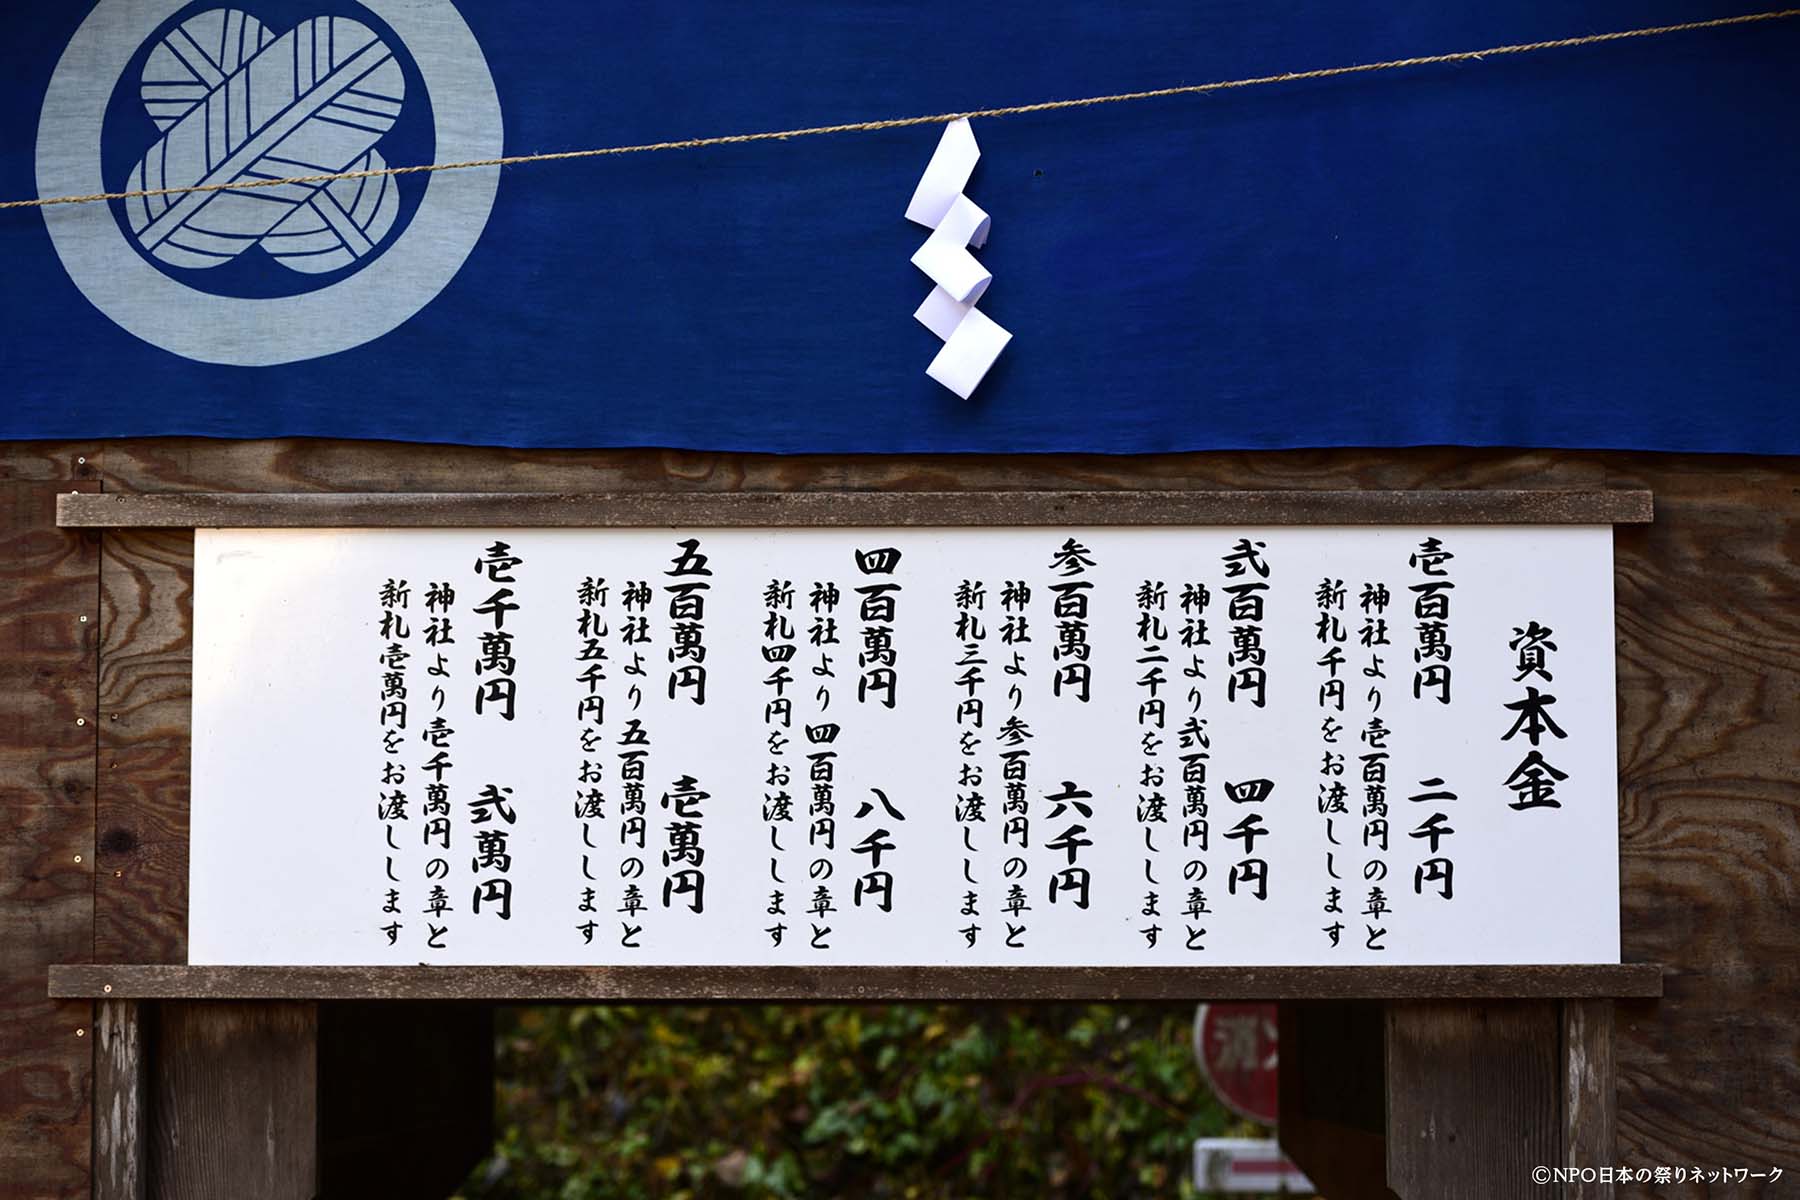 資本金
壱百萬円 二千円
神社より壱百萬円の章と
新札千円をお渡しします
弐百萬円 四千円
神社より弐百萬円の章と
新札二千円をお渡しします
参百萬円 六千円
神社より参百萬円の章と
新札三千円をお渡しします
四百萬円 八千円
神社より四百萬円の章と
新札四千円をお渡しします
五百萬円 壱萬円
神社より五百萬円の章と
新札五千円をお渡しします
壱千萬円 弐萬円
神社より壱千萬円の章と
新札壱萬円をお渡しします
©NPO日本の祭りネットワーク